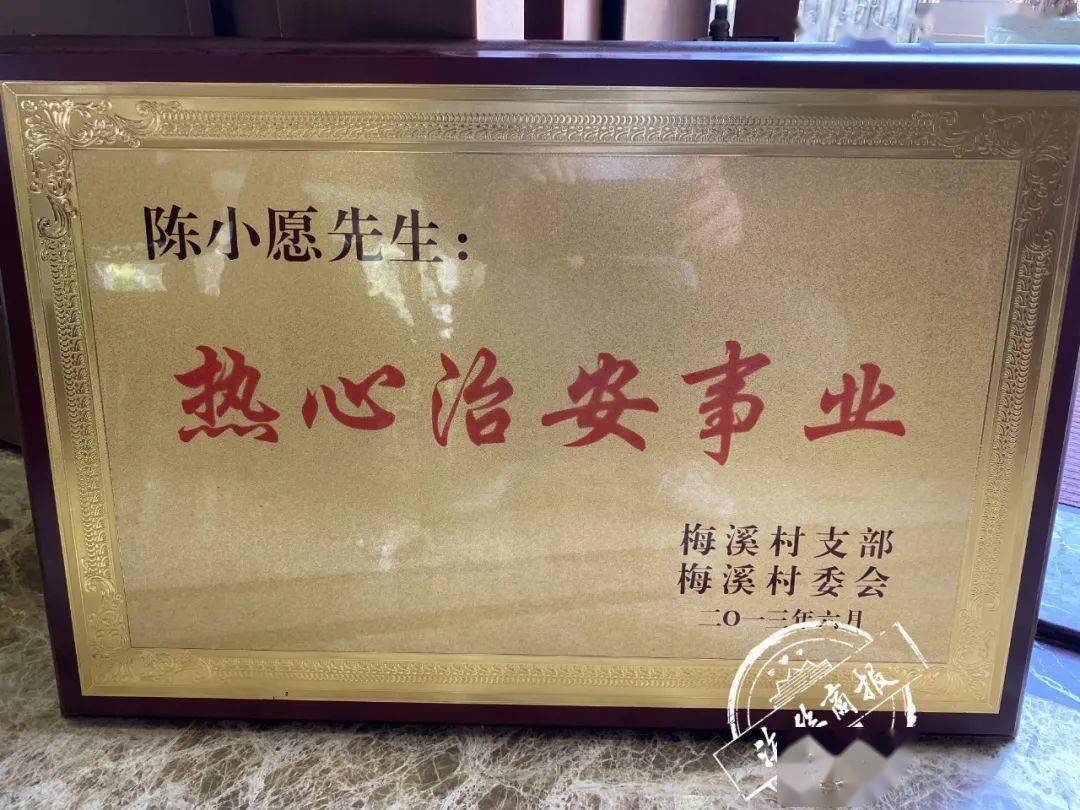 陈小愿先生：
热心治安事业
梅溪村支部
梅溪村委会
二O一三年六月
商报